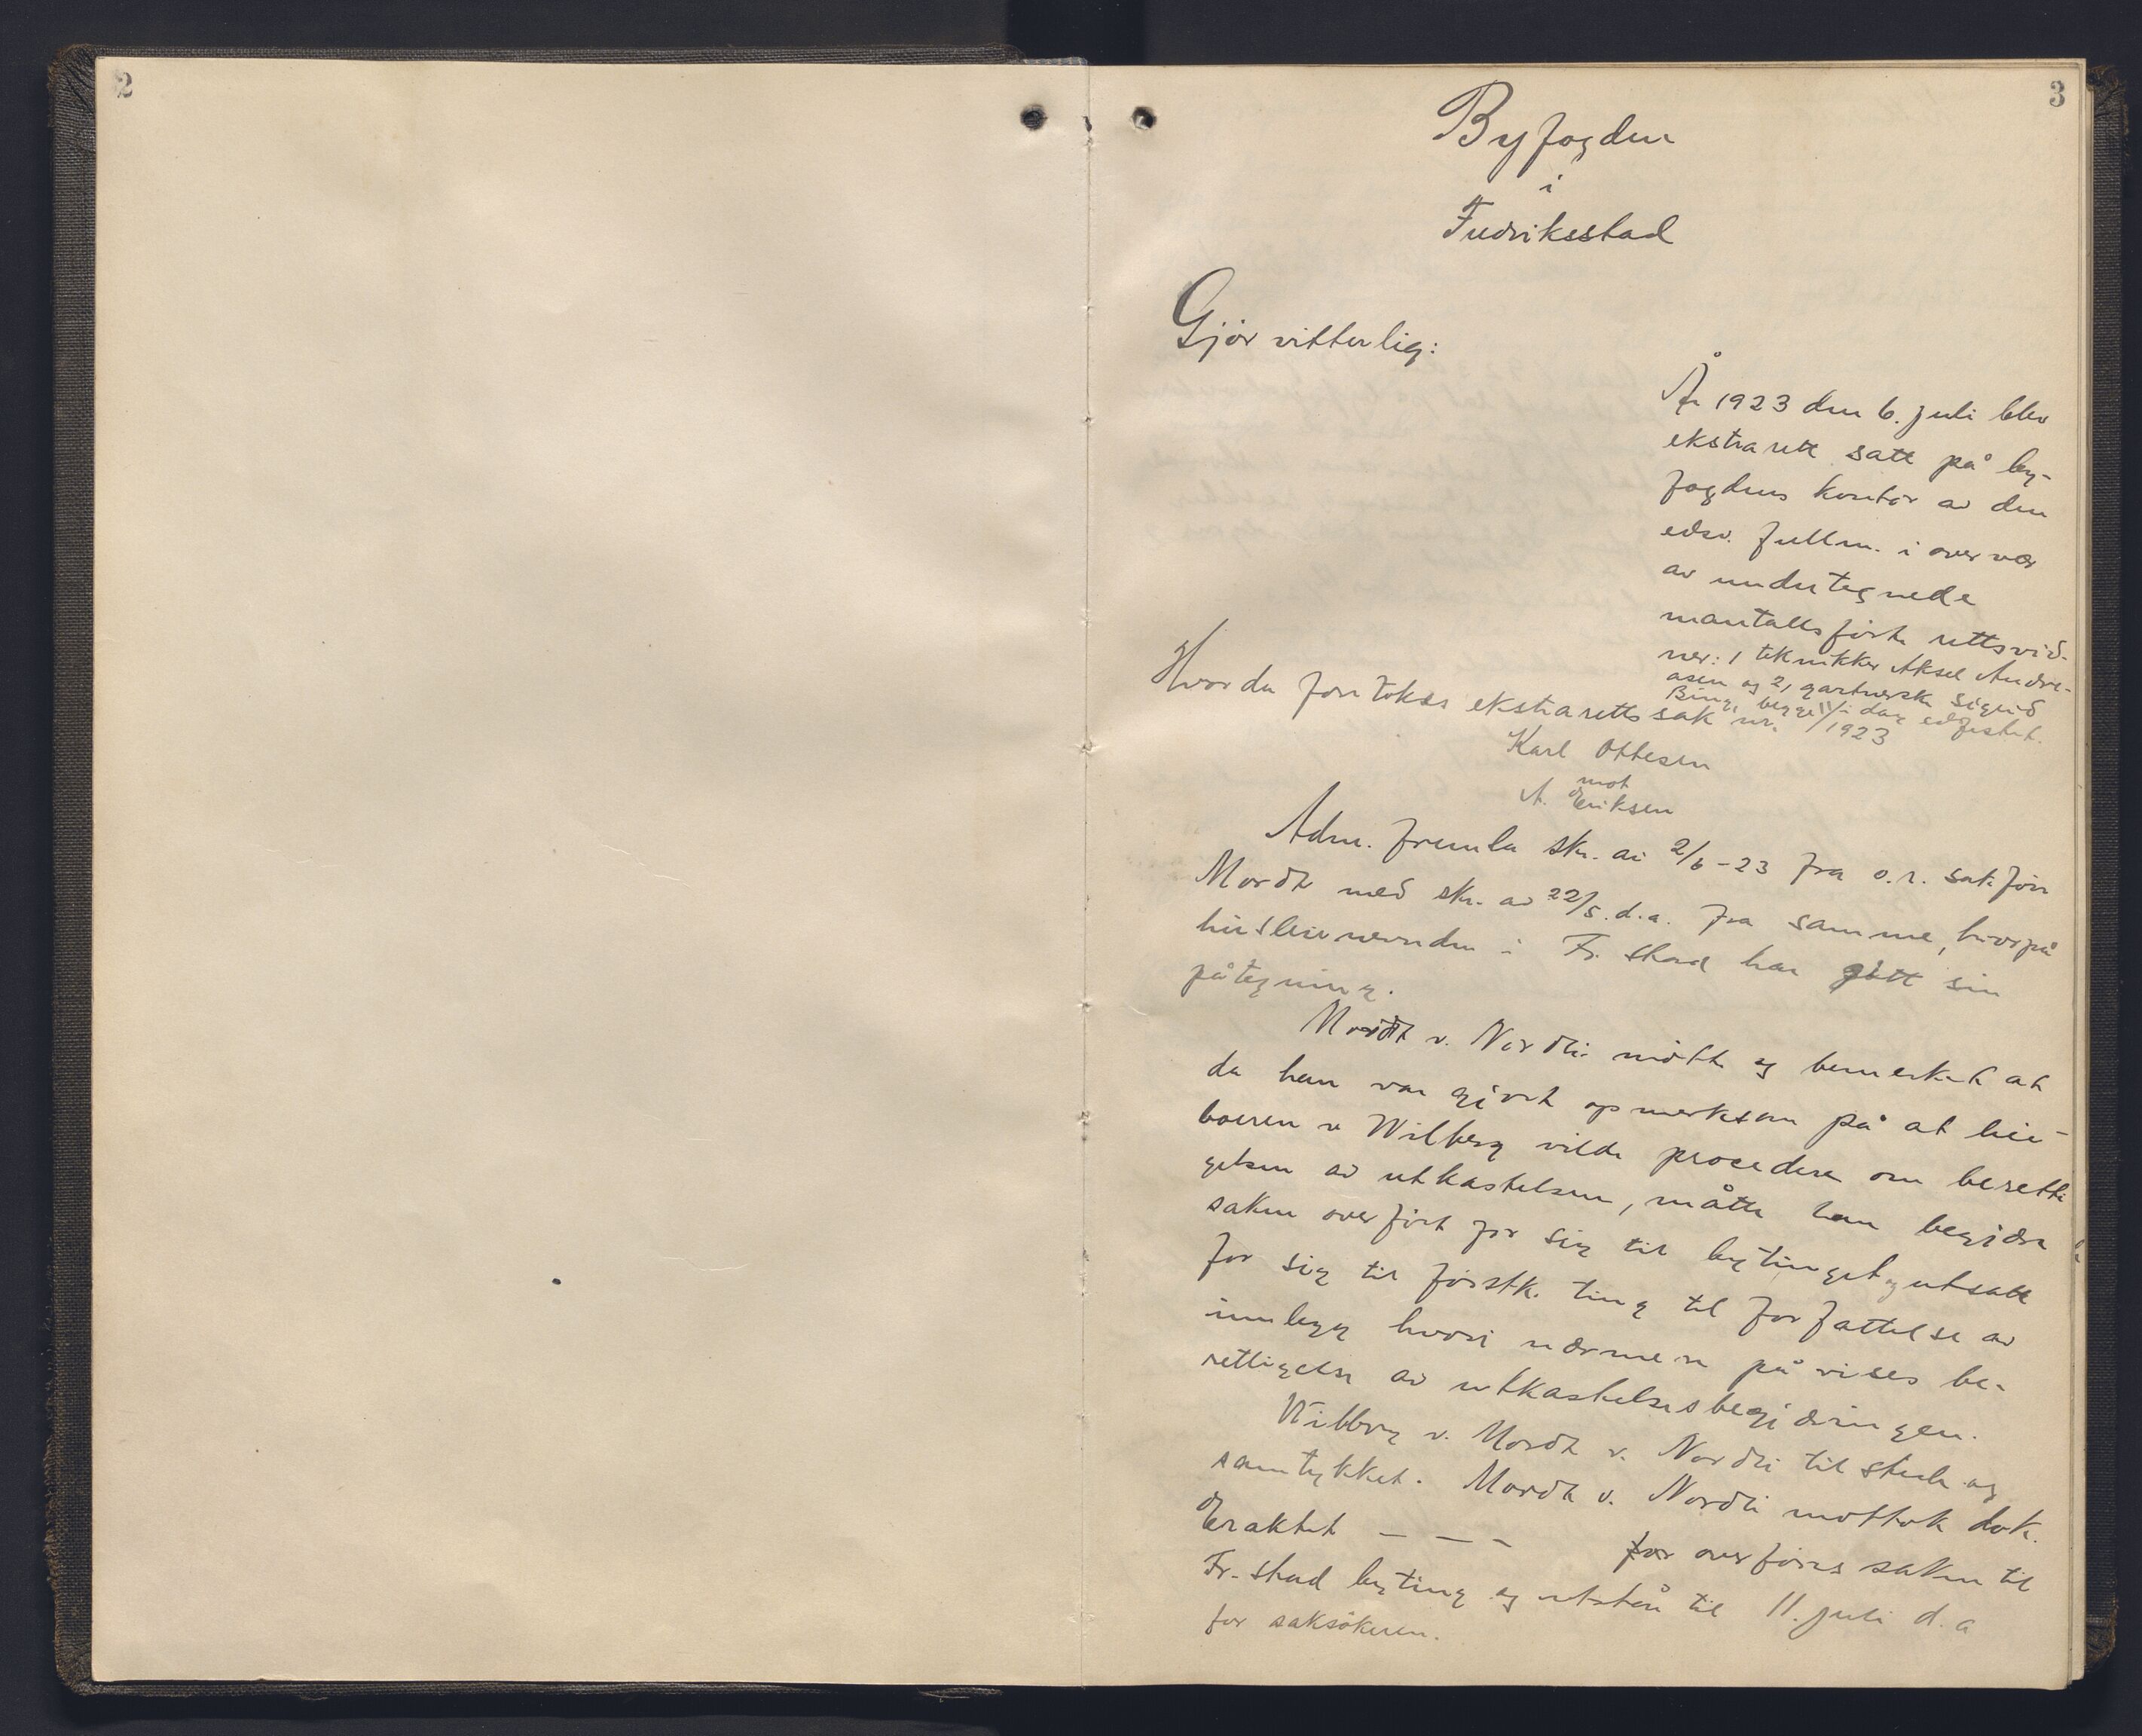 2
3
Byfogden
i
Fredriksstad
Gjör vitterlig:
År 1923 den 6. juli blev
ekstrarett satt på by-
fogdens kontor av den
edsv. fullm. i overvær
av undertegnede
mantallsförte rettsvid-
ner: 1 tekniker Aksel Andre-
asen og 2, gartnerske Sigrid
Bing, begge i dag edfestet.
Hvor da foretokes ekstrarettssak nr. 11/1923
Karl Ottesen
mot
A. Eriksen
Adm. fremla skr. av 2/6-23 fra o.r. sakförer
Mordt med skr. av 22/5. d.a. fra samme, hvorpå
husleienevnden i Fr.stad har gitt sin
påtegning.
Mordt v. Nordli mötte og bemerket at
da han var gjort opmerksom på at leie-
boeren v Wilberg vilde procedere om beretti
gelsen av utkastelsen, måtte han begjære
saken overfört for sig til bytinget og utsatt
for sig til förstk. ting til forfattelse av
innlegg hvori nærmere påvises be-
rettigelse av utkastelsesbegjæringen.
Wilberg v. Mordt v. Nordli tilstede og
samtykket. Mordt v. Nordli mottok dok.
Eraktet - - - for overföres saken til
Fr.stad byting og utstår til 11. juli d.a
for saksökeren.